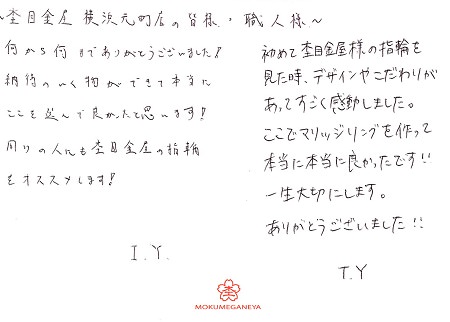 ~杢目金屋 横浜元町店の皆様・職人様~
何から何までありがとうございました!
納得のいく物ができて本当に
ここを選んで良かったと思います!
周りの人にも杢目金屋の指輪
をオススメします!
I.Y.
初めて杢目金屋様の指輪を
見た時、デザインやこだわりが
あってすごく感動しました。
ここでマリッジリングを作って
本当に本当に良かったです!!
一生大切にします。
ありがとうございました!!
T.Y
MOKUMEGANEYA